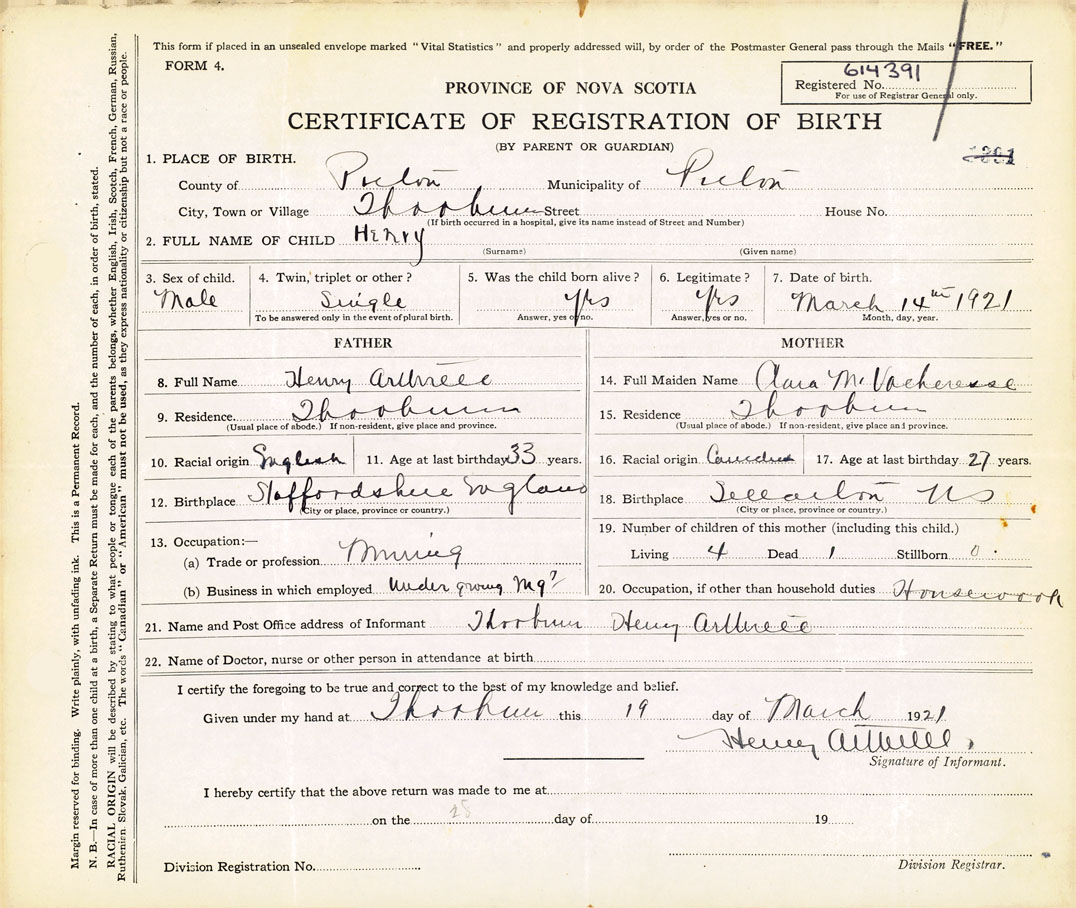 This form if placed in an unsealed envelope marked "Vital Statistics" and properly addressed will, by order of the Postmaster General pass through the Mails "FREE."
FORM 4.
614391
Registered No.
For use of Registrar General only.
PROVINCE OF NOVA SCOTIA
CERTIFICATE OF REGISTRATION OF BIRTH
(BY PARENT OR GUARDIAN)
1. PLACE OF BIRTH.
County of Pictou Municipality of Pictou
City, Town or Village Thorburn Street House No.
(If birth occurred in a hospital, give its name instead of Street and Number)
2. FULL NAME OF CHILD Henry
(Surname) (Given name)
3. Sex of child. 4. Twin, triplet or other? 5. Was the child born alive? 6. Legitimate? 7. Date of birth.
Male Single yes yes March 14th 1921
To be answered only in the event of plural birth. Answer, yes or no. Answer, yes or no. Month, day, year.
FATHER MOTHER
8. Full Name Henry 14. Full Maiden Name Clara Mc Vacheresse
9. Residence. Thorburn 15. Residence Thorburn
(Usual place of abode.) If non-resident, give place and province. (Usual place of abode.) If non-resident, give place and province.
10. Racial origin English 11. Age at last birthday 33 years. 16. Racial origin 17. Age at last birthday 27 years.
12. Birthplace Staffordshire England 18. Birthplace Stellarton NS
(City or place, province or country.) (City or place, province or country.)
19. Number of children of this mother (including this child.)
13. Occupation:—
(a) Trade or profession Mining Living 4 Dead 1 Stillborn 0
(b) Business in which employed Under 20. Occupation, if other than household duties Housework
21. Name and Post Office address of Informant Thorburn Henry
22. Name of Doctor, nurse or other person in attendance at birth
I certify the foregoing to be true and correct to the best of my knowledge and belief.
Given under my hand at Thorburn this 19 day of March 1921
Henry
Signature of Informant.
I hereby certify that the above return was made to me at
on the 28 day of 19
Division Registration No. Division Registrar.
Margin reserved for binding. Write plainly, with unfading ink. This is a Permanent Record.
N. B.—In case of more than one child at a birth, a Separate Return must be made for each, and the number of each, in order of birth, stated.
RACIAL ORIGIN will be described by stating to what people or tongue each of the parents belongs, whether English, Irish, Scotch, French, German, Russian,
Ruthenian, Slovak, Galician, etc. The words "Canadian" or "American" must not be used, as they express nationality or citizenship but not a race or people.